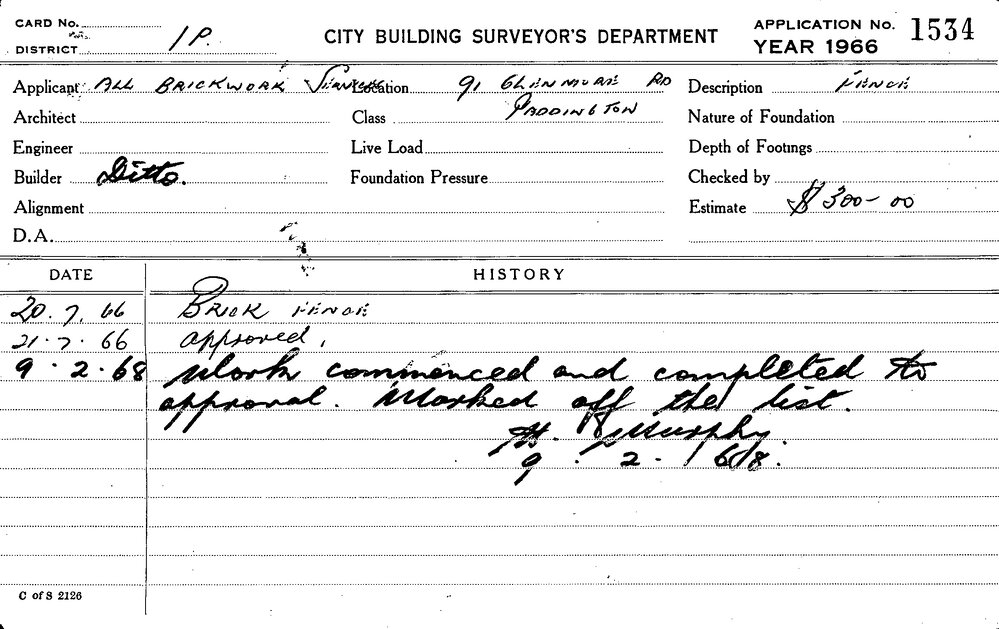 CARD No.
DISTRICT 1P.
CITY BUILDING SURVEYOR'S DEPARTMENT
APPLICATION No. 1534
YEAR 1966
Applicant ALL BRICKWORK Location 91 GLENMORE RD Description FENCE
Architect Class PADDINGTON Nature of Foundation
Engineer Live Load Depth of Footings
Builder Ditto. Foundation Pressure Checked by
Alignment Estimate $300-00
D.A.
DATE HISTORY
20.7.66 BRICK FENCE
21.7.66 approved,
9.2.68 Work commenced and completed to
approval. Marked off the list.
Murphy.
9.2.68.
C of S 2126